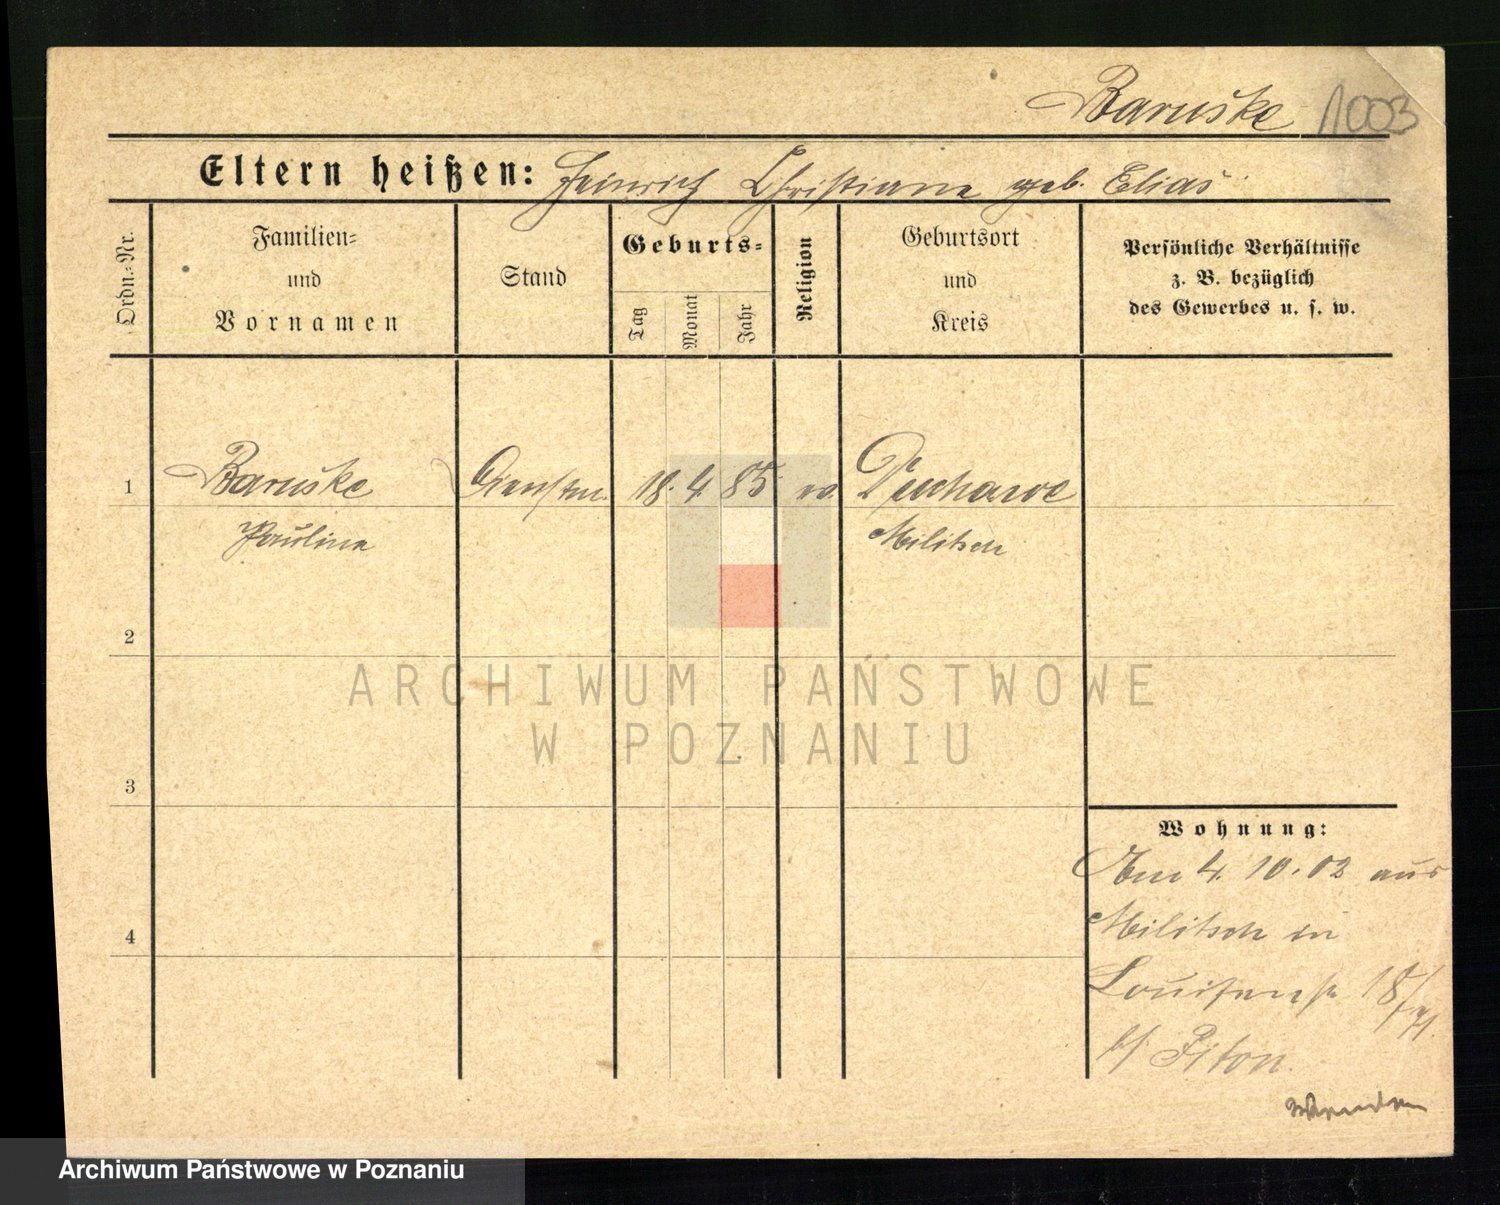 Baruške 1003
Eltern heißen: Heinrich Christiane geb. Elias
Ordn.-Nr.
Familien-
und
Vornamen
Stand
Geburts-
Tag
Monat
Jahr
Religion
Geburtsort
und
Kreis
Persönliche Verhältnisse
z. B. bezüglich
des Gewerbes u. s. w.
1 Baruške Dienstm. 18. 4. 85 ev.
Pauline Militsch
2
3
4
Wohnung:
Am 4. 10. 02 aus
Militsch in
Louisenstr 18/
b/ Piton.
Wenden
ARCHIWUM PAŃSTWOWE
W POZNANIU
Archiwum Państwowe w Poznaniu